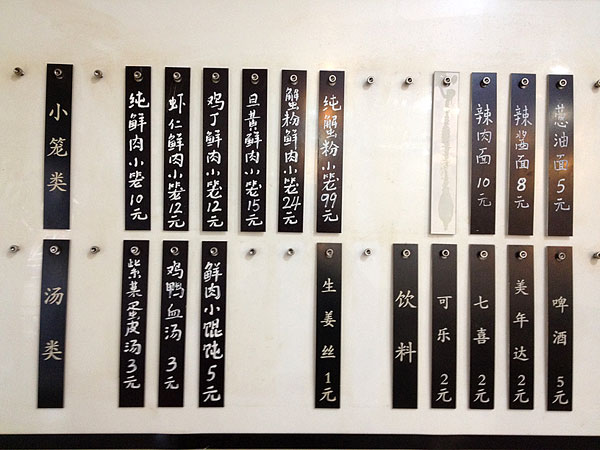 小笼类
纯鲜肉小笼10元
虾仁鲜肉小笼12元
鸡丁鲜肉小笼12元
旦黄鲜肉小笼15元
蟹粉鲜肉小笼24元
纯蟹粉小笼99元
辣肉面10元
辣酱面8元
葱油面5元
汤类
紫菜蛋皮汤3元
鸡鸭血汤3元
鲜肉小馄饨5元
生姜丝1元
饮料
可乐2元
七喜2元
美年达2元
啤酒5元